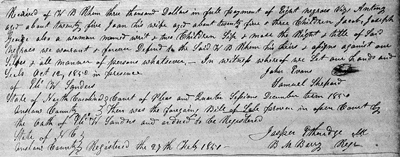 Received of W B Rhem three thousand Dollars in full payment of Eight negroes Viz Antney
age about twenty five Jean his wife aged about twenty five & three Children Jacob, Joseph
George also a woman named with & two Children & make the Right & title of Said
negroes we warrant & forever Defend to the Said W B Rhem his heirs & assigns against our
Selves & all manner of persons whatever In witness whereof we Set our hands and
Seals Oct 12, 1850 in presence of
Thos W Sanders John Evans
Samuel Shepard
State of North Carolina Court of Pleas and Quarter Sessions December term 1850
County Then was the foregoing Bill of Sale proven in open Court by
the Oath of Thos W Sanders and ordered to be Registered
State of N C Jasper Etheridge
County Registered the 27th Feby 1851 B M Barry Regr